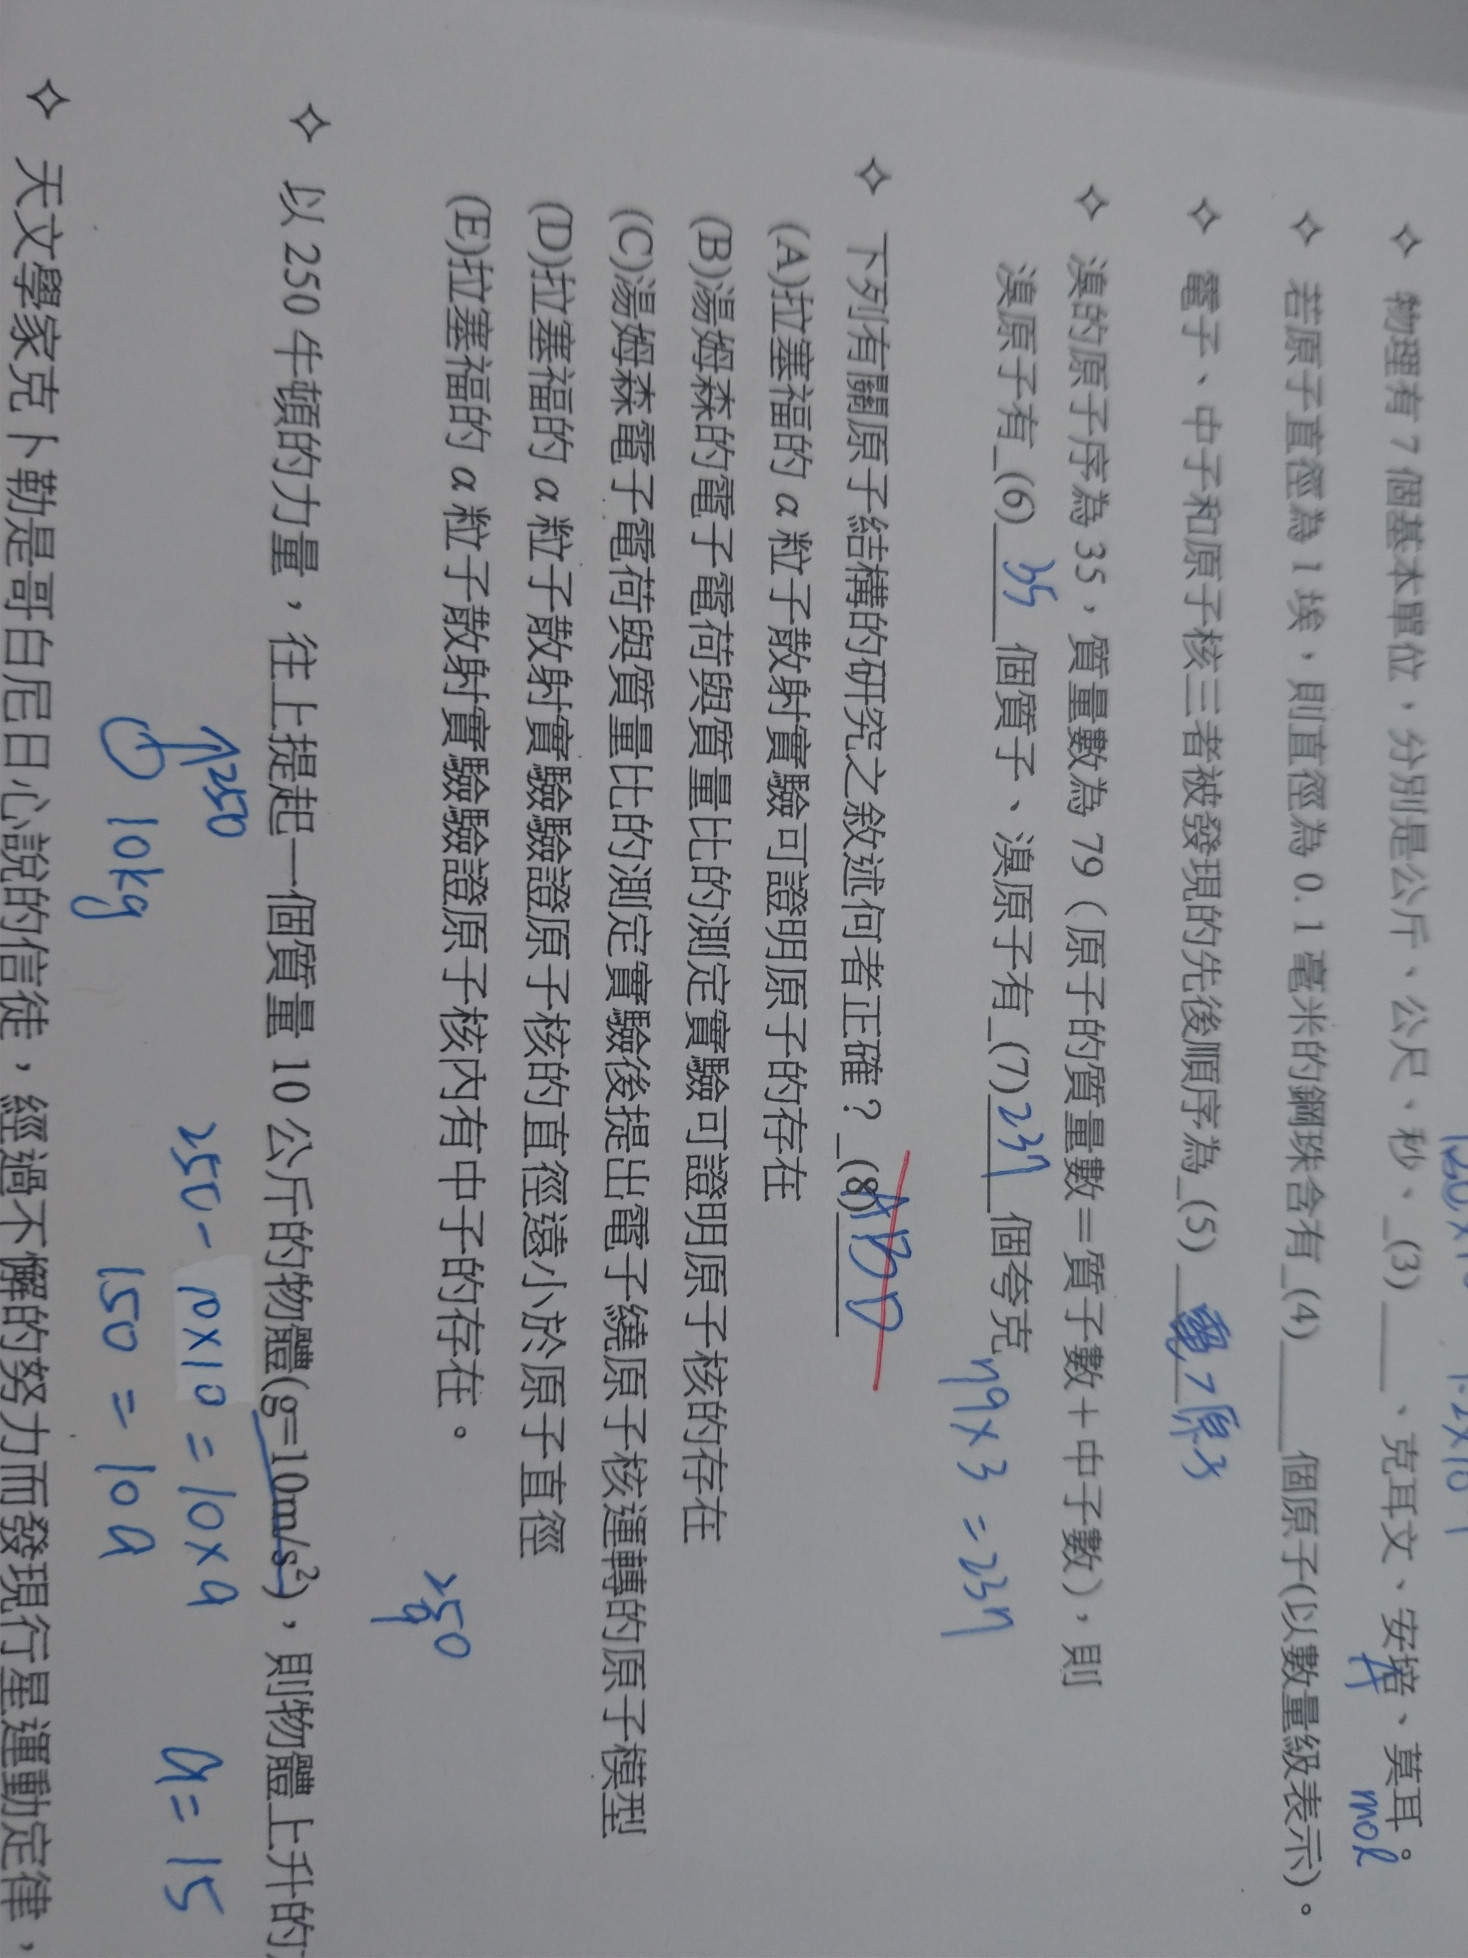 ✧ 物理有 7 個基本單位，分別是公斤、公尺、秒、_(3)____、克耳文、安培、莫耳。
A mol
✧ 若原子直徑為 1 埃，則直徑為 0.1 毫米的鋼珠含有_(4)_____個原子(以數量級表示)。
✧ 電子、中子和原子核三者被發現的先後順序為_(5)____ > 原子
✧ 溴的原子序為 35，質量數為 79（原子的質量數＝質子數＋中子數），則
溴原子有_(6)__35__個質子、溴原子有_(7)_237_個夸克
79×3=237
✧ 下列有關原子結構的研究之敘述何者正確？_(8)ABD
(A)拉塞福的 α 粒子散射實驗可證明原子的存在
(B)湯姆森的電子電荷與質量比的測定實驗可證明原子核的存在
(C)湯姆森電子電荷與質量比的測定實驗後提出電子繞原子核運轉的原子模型
(D)拉塞福的 α 粒子散射實驗驗證原子核的直徑遠小於原子直徑
(E)拉塞福的 α 粒子散射實驗驗證原子核內有中子的存在。
250
✧ 以 250 牛頓的力量，往上提起一個質量 10 公斤的物體(g=10m/s²)，則物體上升的
↑250 250-10×10=10×a a=15
10kg 150=10a
✧ 天文學家克卜勒是哥白尼日心說的信徒，經過不懈的努力而發現行星運動定律，